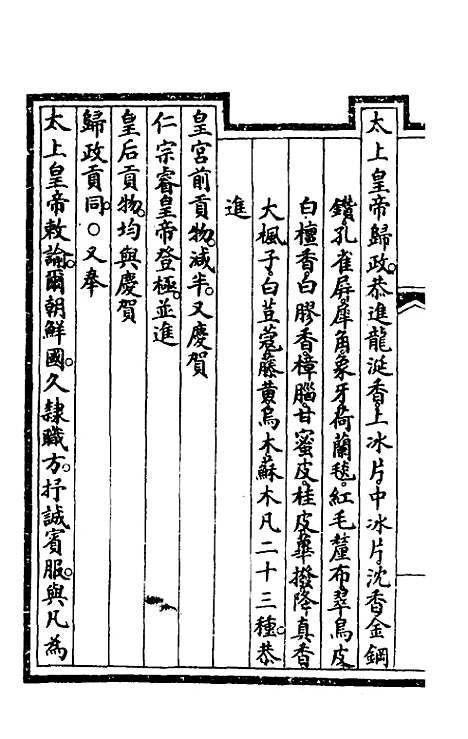 太上皇帝歸政。恭進龍涎香、上冰片、中冰片、沈香、金鋼
鑽、孔雀屏、犀角、象牙、荷蘭毯、紅毛釐布、翠鳥皮、
白檀香、白膠香、樟腦、甘蜜皮、桂皮、蓽撥、降真香、
大楓子、白荳蔻、藤黃、烏木、蘇木、凡二十三種。恭
進
皇宮前貢物。減半。又慶賀
仁宗睿皇帝登極。並進
皇后貢物。均與慶賀
歸政貢同。○又奉
太上皇帝敕諭。爾朝鮮國。久隷職方。抒誠賓服。與凡為